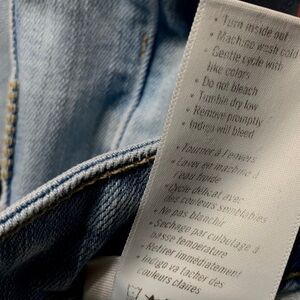 • Turn inside out
• Machine wash cold
• Gentle cycle with
like colors
• Do not bleach
• Tumble dry low
• Remove promptly
• Indigo will bleed
• Tourner à l'envers
• Laver en machine à
l'eau froide
• Cycle délicat avec
des couleurs semblables
• Ne pas blanchir
• Séchage par culbutage à
basse température
• Retirer immédiatement
• Indigo va tacher des
couleurs claires